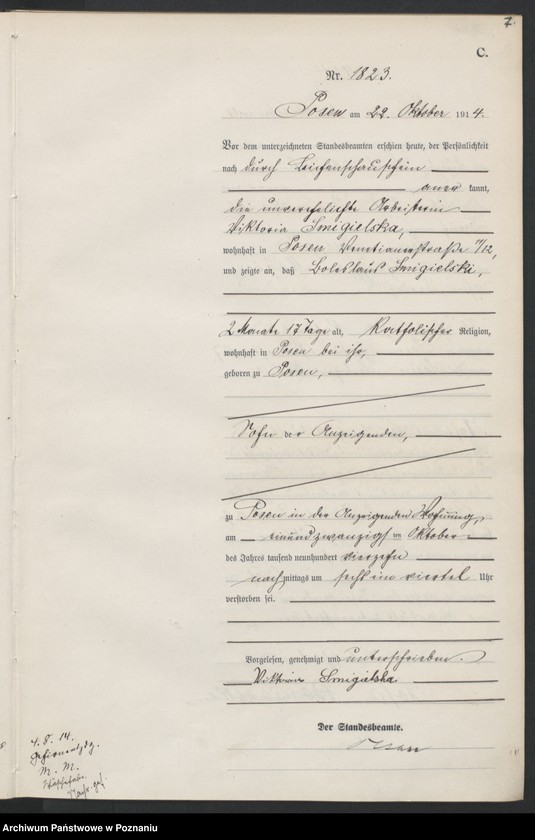 7.
C.
Nr. 1823.
Posen am 22. Oktober 1914.
Vor dem unterzeichneten Standesbeamten erschien heute, der Persönlichkeit
nach durch Leichenschauschein
aner kannt,
die unverehelichte Arbeiterin
Viktoria Smigielska,
wohnhaft in Posen Venetianerstraße 7/12,
und zeigte an, daß Boleslaus Smigielski,
2 Monate 17 Tage alt, Katholischer Religion,
wohnhaft in Posen bei ihr,
geboren zu Posen,
Sohn der Anzeigenden,
zu Posen in der Anzeigenden Wohnung,
am einundzwanzigsten Oktober
des Jahres tausend neunhundert vierzehn
nach mittags um sechs ein viertel Uhr
verstorben sei.
Vorgelesen, genehmigt und unterschrieben.
Viktoria Smigielska
Der Standesbeamte.
4. 8. 14.
Archiwum Państwowe w Poznaniu